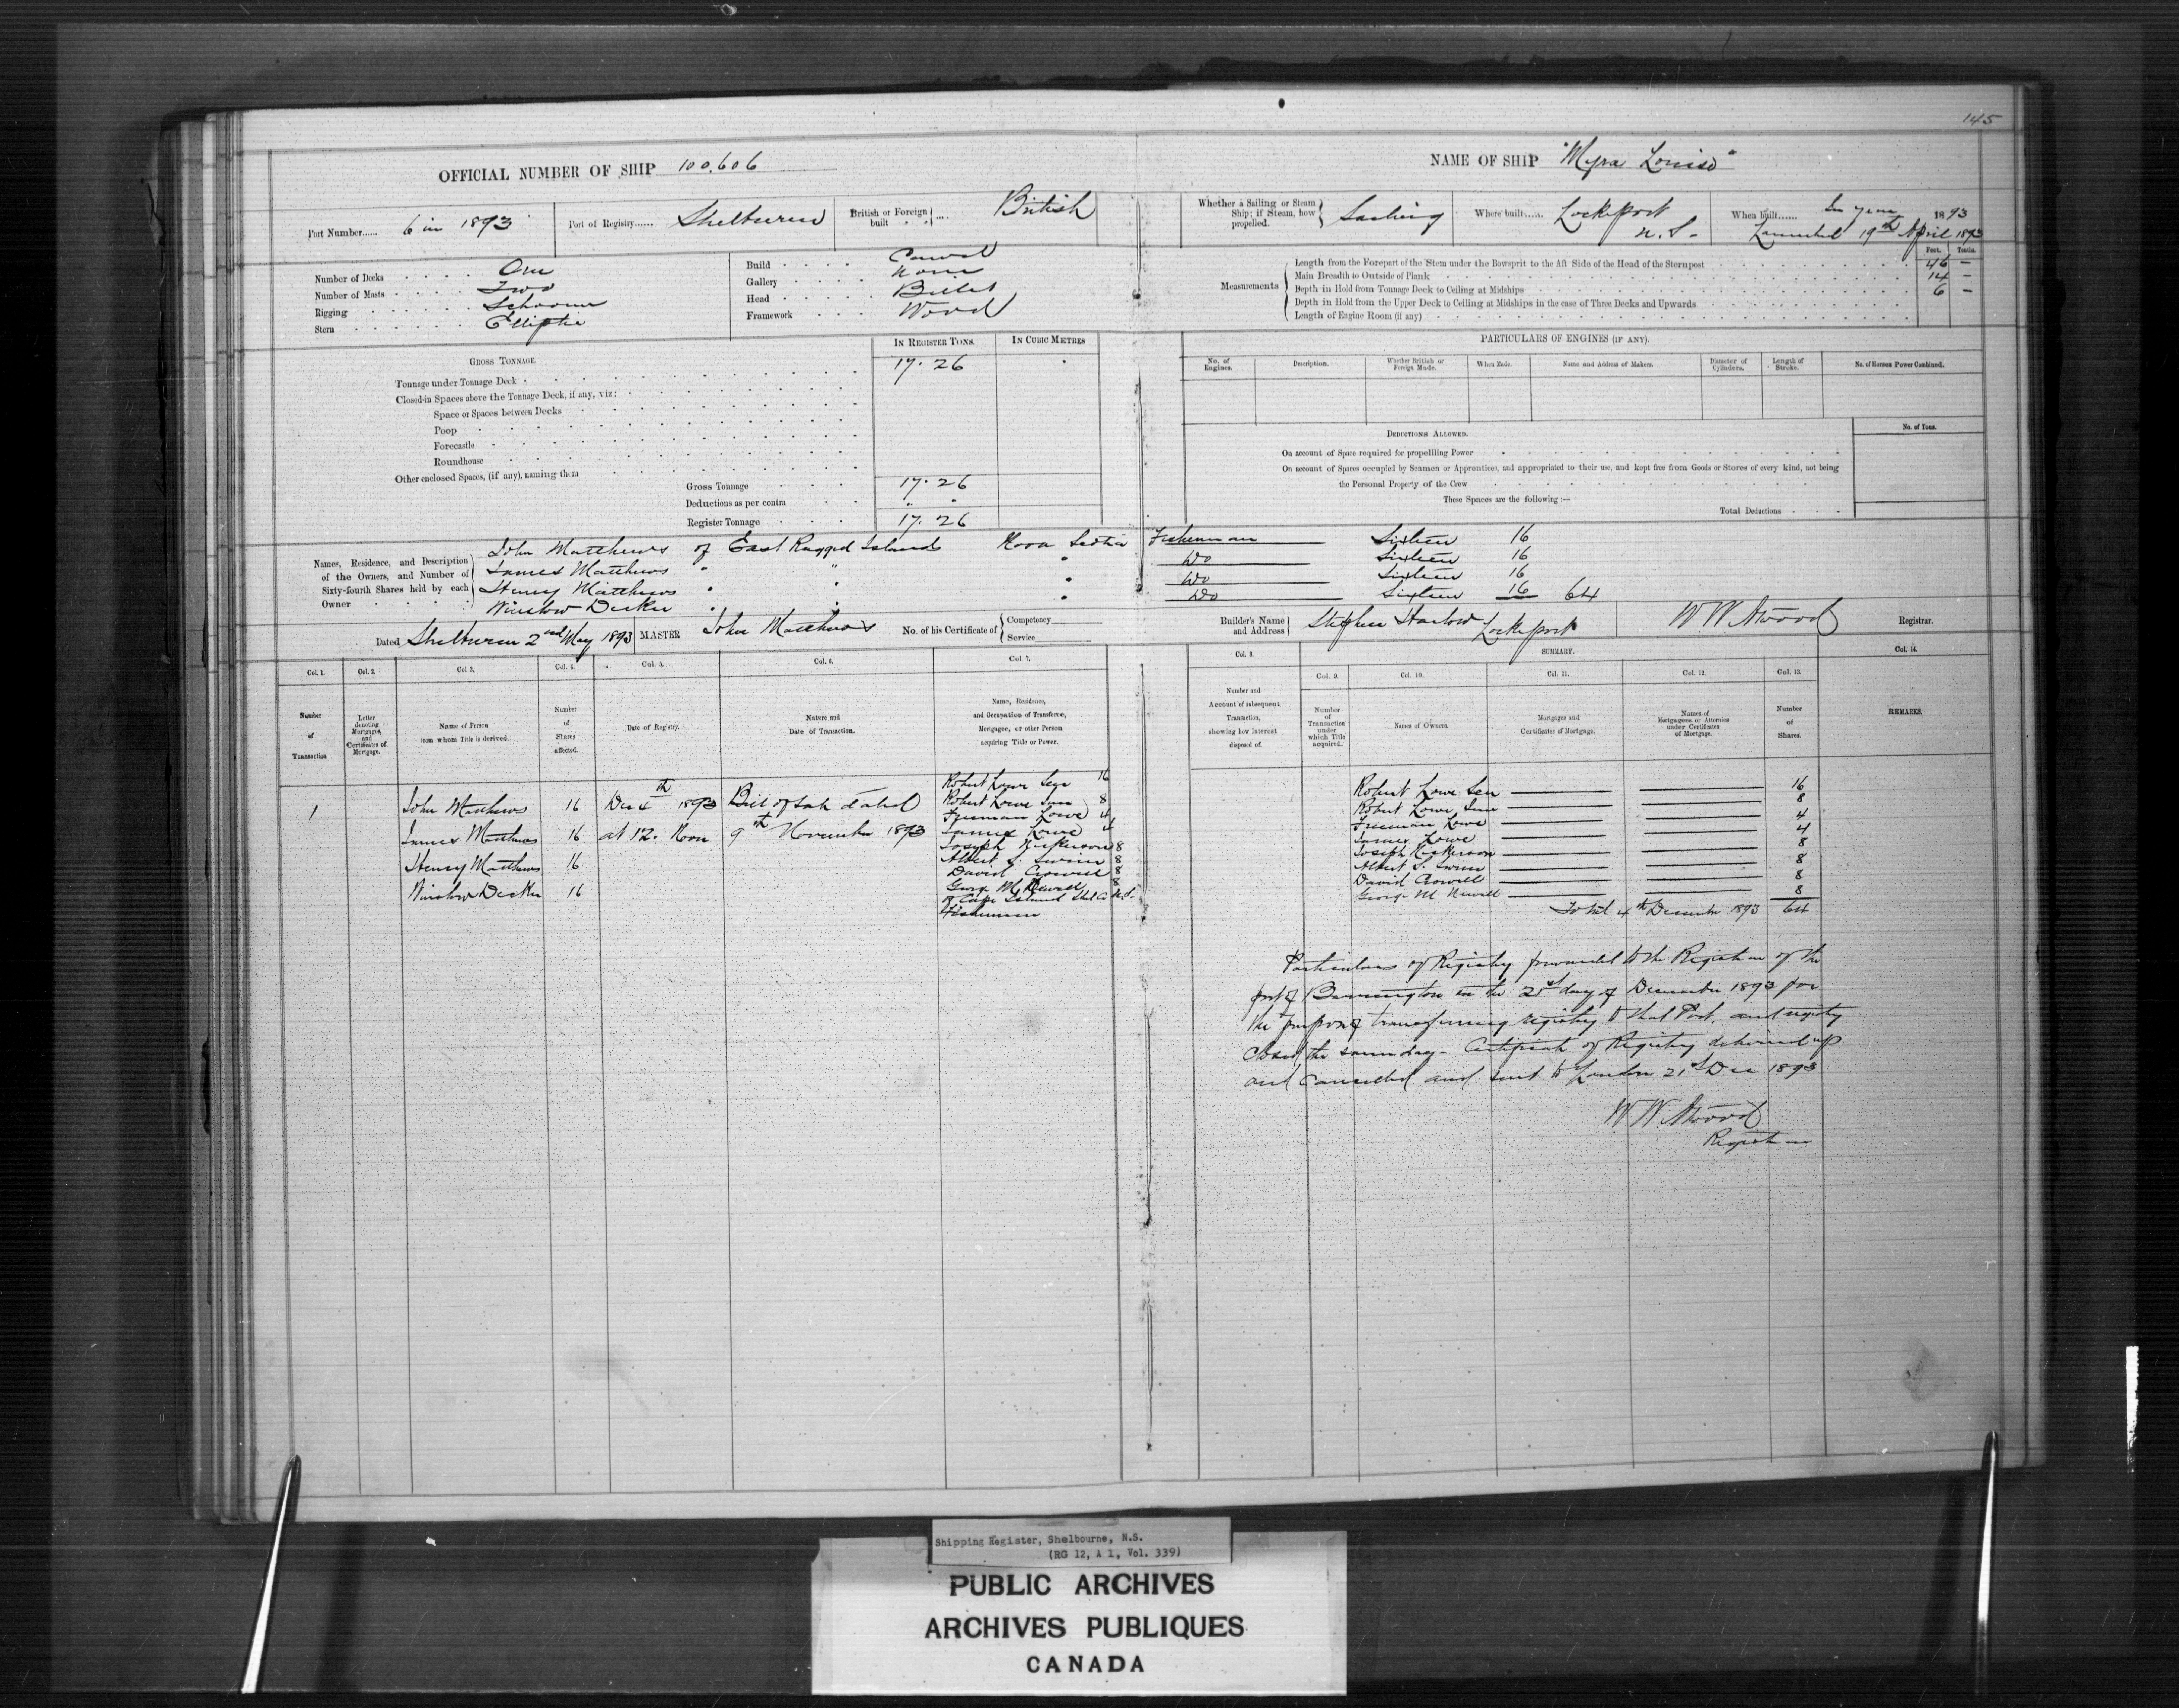 145
OFFICIAL NUMBER OF SHIP 100,606
NAME OF SHIP "Myra Louise"
Port Number...... 6 in 1893
Port of Registry...... Shelburne
British or Foreign built . . ... British
Whether a Sailing or Steam Ship; if Steam, how propelled. Sailing
Where built...... Lockeport N.S.
When built...... In year 1893
Launched 19th April 1893
Number of Decks . . . . One
Number of Masts . . . . Two
Rigging . . . . Schooner
Stern . . . . Elliptic
Build . . . . Carvel
Gallery . . . . None
Head . . . . Billet
Framework . . . . Wood
Measurements
Feet. Tenths.
Length from the Forepart of the Stem under the Bowsprit to the Aft Side of the Head of the Sternpost 46 –
Main Breadth to Outside of Plank 14 –
Depth in Hold from Tonnage Deck to Ceiling at Midships 6 –
Depth in Hold from the Upper Deck to Ceiling at Midships in the case of Three Decks and Upwards
Length of Engine Room (if any)
GROSS TONNAGE.
IN REGISTER TONS.
IN CUBIC METRES
Tonnage under Tonnage Deck 17.26
Closed-in Spaces above the Tonnage Deck, if any, viz:
Space or Spaces between Decks
Poop
Forecastle
Roundhouse
Other enclosed Spaces, (if any), naming them
Gross Tonnage 17.26
Deductions as per contra " "
Register Tonnage 17.26
PARTICULARS OF ENGINES (IF ANY).
No. of Engines.
Description.
Whether British or Foreign Made.
When Made.
Name and Address of Makers.
Diameter of Cylinders.
Length of Stroke.
No. of Horses Power Combined.
DEDUCTIONS ALLOWED.
No. of Tons.
On account of Space required for propelling Power
On account of Spaces occupied by Seamen or Apprentices, and appropriated to their use, and kept free from Goods or Stores of every kind, not being
the Personal Property of the Crew
These Spaces are the following :—
Total Deductions
Names, Residence, and Description of the Owners, and Number of Sixty-fourth Shares held by each Owner
John Matthews of East Ragged Islands Nova Scotia Fisherman Sixteen 16
James Matthews " " " Do Sixteen 16
Henry Matthews " " " Do Sixteen 16
Winslow Decker " " " Do Sixteen 16 64
Dated Shelburne 2nd May 1893
MASTER John Matthews
No. of his Certificate of Competency Service
Builder's Name and Address Stephen Harlow Lockeport
W W Atwood Registrar.
Col. 1. Col. 2. Col. 3. Col. 4. Col. 5. Col. 6. Col. 7. Col. 8.
SUMMARY.
Col. 9. Col. 10. Col. 11. Col. 12. Col. 13. Col. 14.
Number of Transaction
Letter denoting Mortgages, and Certificates of Mortgage.
Name of Person from whom Title is derived.
Number of Shares affected.
Date of Registry.
Nature and Date of Transaction.
Name, Residence, and Occupation of Transferee, Mortgagee, or other Person acquiring Title or Power.
Number and Account of subsequent Transaction, showing how interest disposed of.
Number of Transaction under which Title acquired.
Names of Owners.
Mortgages and Certificates of Mortgage.
Names of Mortgagees or Attornies under Certificates of Mortgage.
Number of Shares.
REMARKS.
1
John Matthews 16
James Matthews 16
Henry Matthews 16
Winslow Decker 16
Dec 4th 1893
at 12. Noon
Bill of Sale dated
9th November 1893
Robert Lowe Senr 16
Robert Lowe Junr 8
Freeman Lowe 4
James Lowe 4
Joseph Nickerson 8
Albert S. Swim 8
David Crowell 8
George M Newell 8
of Cape Island Shel Co N.S.
Fishermen
Robert Lowe Sen 16
Robert Lowe Jun 8
Freeman Lowe 4
James Lowe 4
Joseph Nickerson 8
Albert S. Swim 8
David Crowell 8
George M Newell 8
Total 4th December 1893 64
Particulars of Registry forwarded to the Registrar of the
port of Barrington on the 21st day of December 1893 for
the purpose of transferring registry to that Port, and registry
closed the same day – Certificate of Registry delivered up
and cancelled and sent to London 21st Dec 1893
W. W. Atwood
Registrar
Shipping Register, Shelbourne, N.S.
(RG 12, A 1, Vol. 339)
PUBLIC ARCHIVES
ARCHIVES PUBLIQUES
CANADA